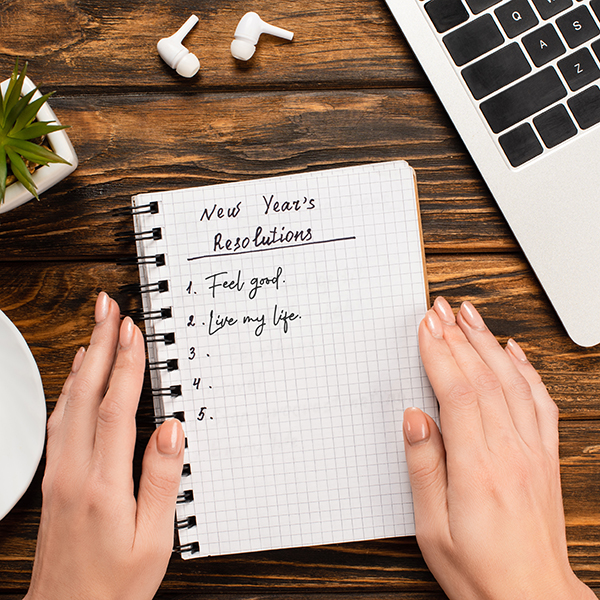 New Year's
Resolutions
1. Feel good.
2. Live my life.
3.
4.
5.
Q
A
Z